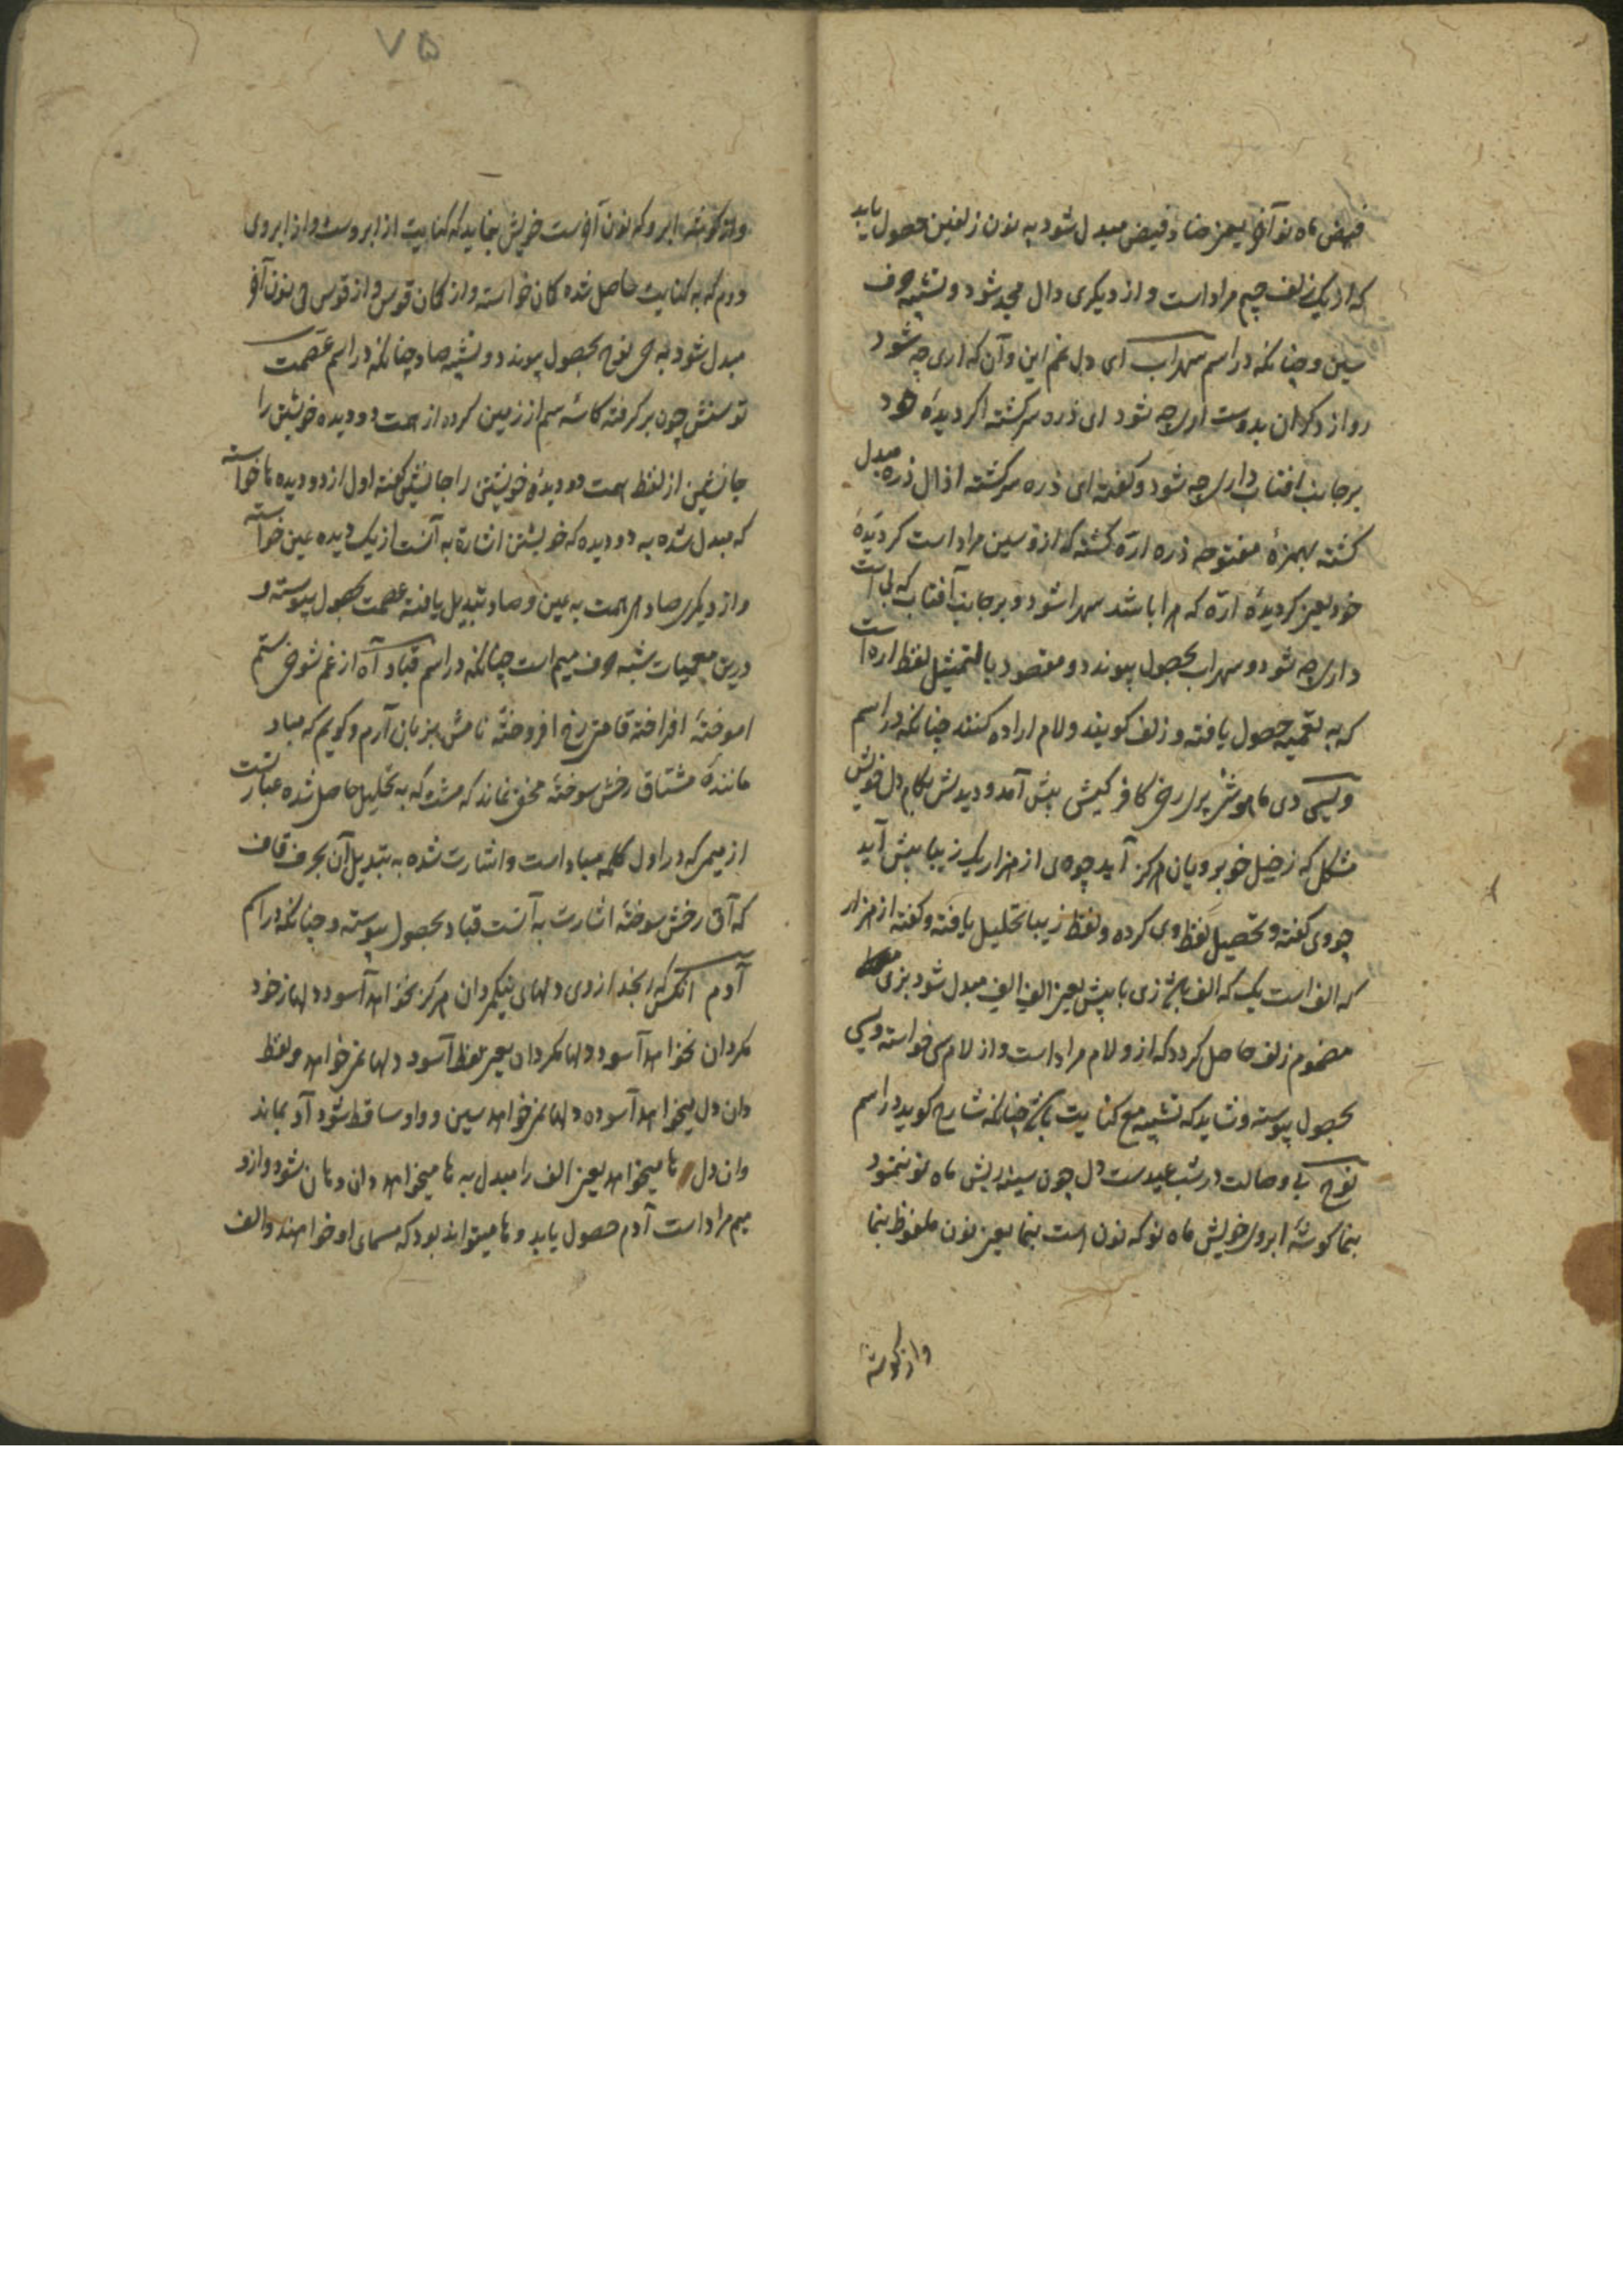 فیض ماه نو آخر یعنی ضاد فیض مبدل شود به نون زلفین حصول یابد
که از یک زلف جیم مراد است و از دیگری دال مجد شود و تشبیه حرف
سین و چنانکه در اسم سهراب ای دل غم این و آن که آری چه شود
رو از دکران بدوست آری چه شود ای ذره سرکشته اکر دیده خود
بر جانب افتاب داری چه شود و کفته ای ذره سرکشته از ال ذره مبدل
کشته بهمزهٔ مفتوحه ذره ارّه کشته که ازو سین مراد است کر دیدهٔ
خود یعنی کر دیدهٔ ارّه که ها باشد سهرا شود و بر جانب آفتاب که بی است
داری چه شود و سهراب بحصول پیوندد و مقصود بالتمثیل لفظ اره است
که به تعمیه حصول یافته و زلف کویند و لام اراده کنند چنانکه در اسم
ویسی دی ماهوشی پر رخ کافر کیشی پیش آمد و دیدش بکام دل خویش
مشکل که ز خیل خوبرویان هرکز آید چو وی از هزار یک زیبا پیش آید
چو وی کفته و تحصیل لفظ وی کرده و لفظ زیبا تحلیل یافته و کفته از هزار
که الف است یک که الف باشد زی با پیش یعنی الف الف مبدل شود بزی
مضموم زلف حاصل کردد که ازو لام مراد است و از لام سی خواسته ویسی
بحصول پیوسته و شاید که تشبیه مع کنایت باشد چنانکه شارح کوید در اسم
نوح بی وصالت در شب عیدست دل چون سینه ریش ماه نو ننمود
بنما کوشهٔ ابروی خویش ماه نو که نون است بنما یعنی نون ملفوظ بنما
واز کوشه
٧۵
واز کوشهٔ ابرو که نون آخرست خویش بنماید که کنایت از ابروست و از ابروی
دوم که به کنایت حاصل شده کمان خواسته و از کمان قوس و از قوس حی نون آخر
مبدل شود به حی نوح بحصول پیوندد و تشبیه صاد چنانکه در اسم عصمت
توسنش چون بر کرفته کاسهٔ سم از زمین کرده از همت دو دیده خویشتن را
جانشین از لفظ همت دو دیدهٔ خویشتن را جانشین کفته اول از دو دیده ها خواسته
که مبدل شده به دو دیده که خویشتن اشارة به آنست از یک دیده عین خواسته
و از دیکری صاد های همت به عین و صاد تبدیل یافته عصمت بحصول پیوسته و
درین معمیات مشبه حرف میم است چنانکه در اسم قباد آه از غم شوخ ستم
اموختهٔ افراخته قامتی رخ افروختهٔ نامش بزبان آرم و کویم که مباد
مانندهٔ مشتاق رخش سوختهٔ مخفی نماند که مشت که به تحلیل حاصل شده عبارتست
از میمی که در اول کلمه مباد است و اشارت شده به تبدیل آن بحرف قاف
که آق رخش سوختهٔ اشارت به آنست قباد بحصول پیوسته و چنانکه در اسم
آدم انکس که رنجد از وی دلهای نیکمردان هرکز نخواهد آسود دلها ز خود
مکردان نخواهد آسود دلها مکردان یعنی لفظ آسود دلها نمی خواهد و لفظ
دان دل میخواهد آسوده دلها نمی خواهد سین و واو ساقط شود آد بماند
وان دل ها میخواهد یعنی الف را مبدل به ها میخواهد دان دهان شود و ازو
میم مراد است آدم حصول یابد و ها میتواند بود که مسمای او خواهند و الف